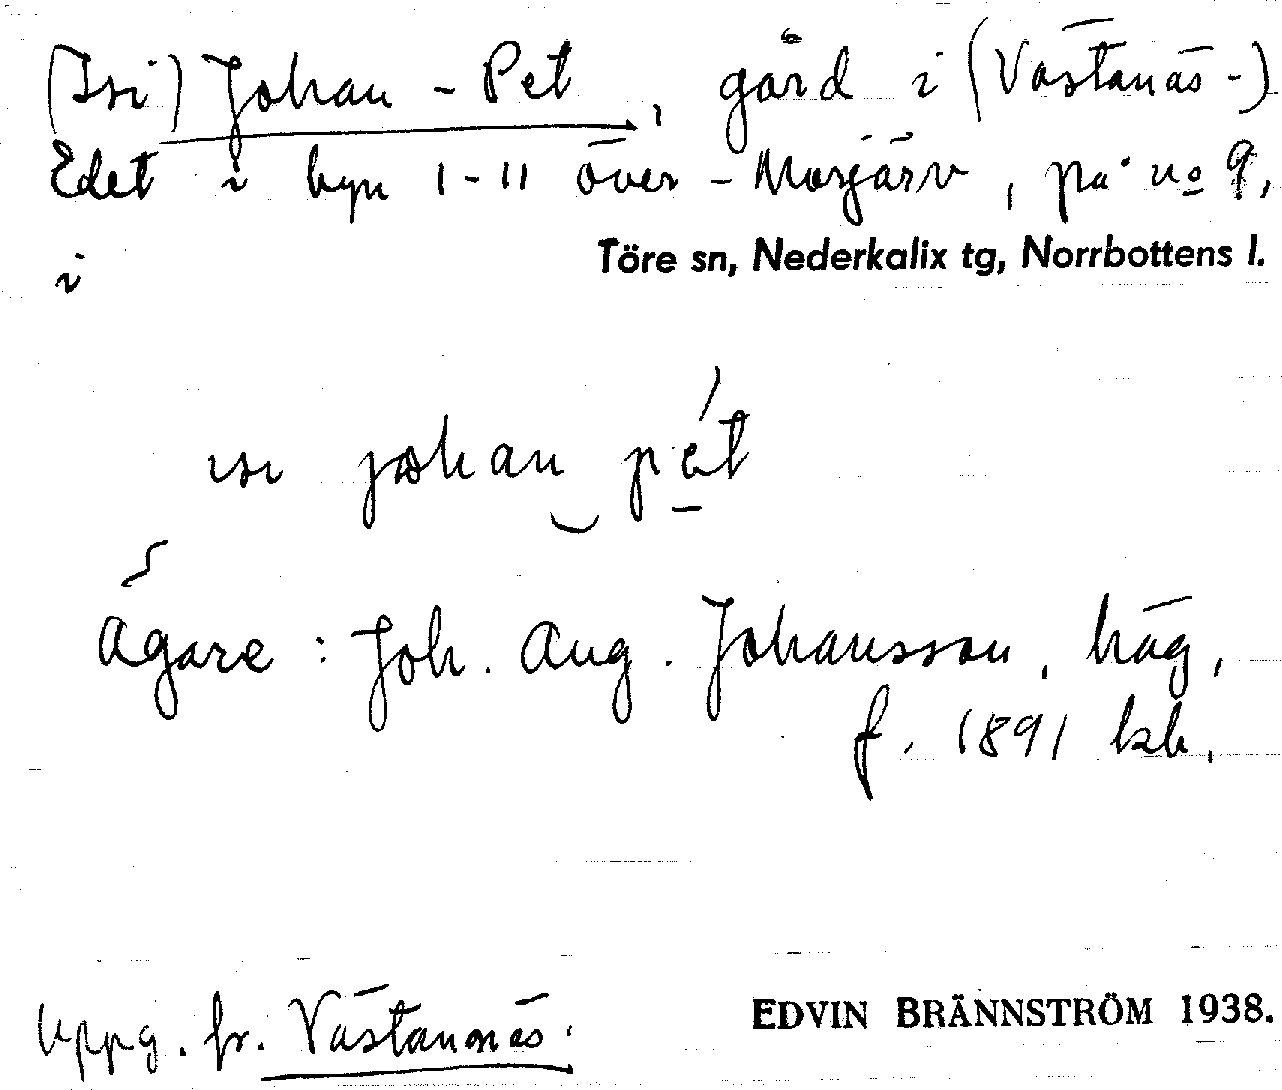 (Isi) Johan - Pet, gård i (Västanås-)
Edet i byn 1-11 över-Morjärv, på no 9,
i
Töre sn, Nederkalix tg, Norrbottens l.
isi johan pét
Ägare: Joh. Aug. Johansson, häg,
f. 1891
Uppg. fr. Västannäs.
EDVIN BRÄNNSTRÖM 1938.